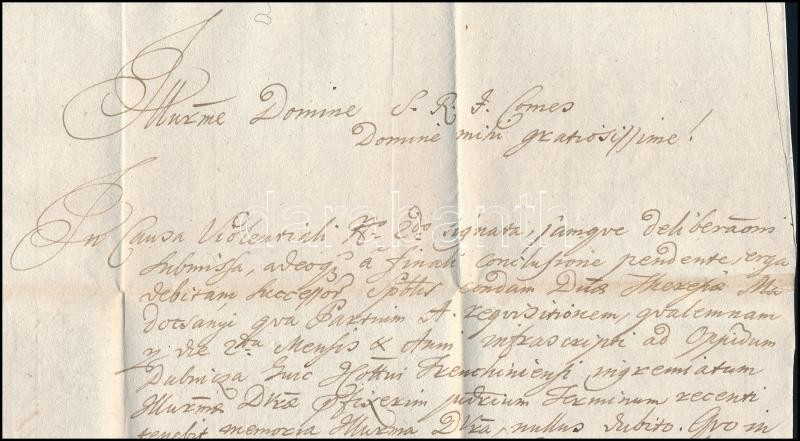 Illurme Domine S. R. I. Comes
Domine mihi gratiosissime!
In Causa Violentiali Nro 2do signata, jamque deliberaoni
submissa, adeoq a finali conclusione pendente, erga
debitam Successor Spblis condam Dnae Theresiae Ma
docsanyi qva Partium A. requisitionem, qvalemnam
die 2da Mensis & Anni infrascripti ad Oppidum
Dubnicza huic Hottui Trenchiniensi ingremiatum
Illurma Dtrae pfixerim Terminum recenti
tenebit memoria Illurma Dtra, nullus dubito. Qvo in
darabanth